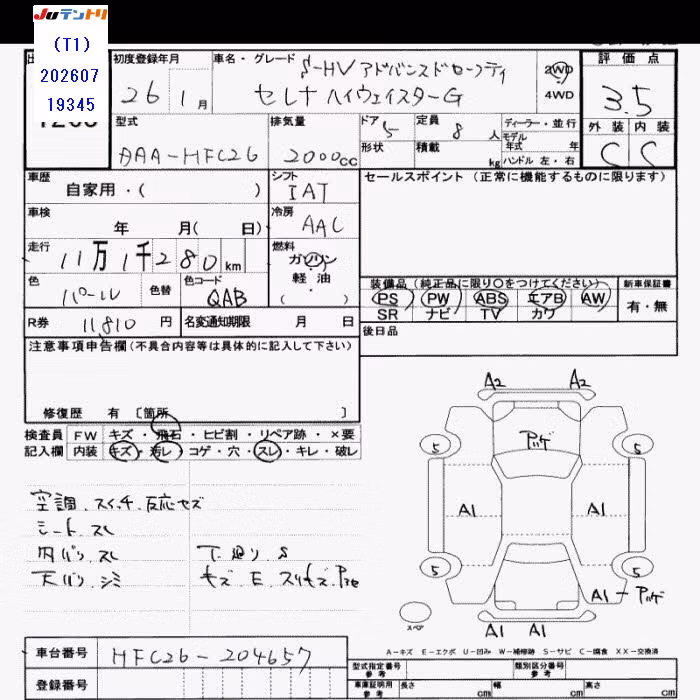 JUテントリ
(T1)
202607
19345
初度登録年月 車名・グレード 評価点
26 1月
S-HV アドバンスドセーフティ
セレナ ハイウェイスターG
2WD
4WD
3.5
型式 排気量 ドア 定員 ディーラー・並行 外装 内装
5 8人 モデル
AAA-HFC26 2000cc 形状 積載 kg 年式 年 ハンドル 左・右 C C
車歴 シフト セールスポイント(正常に機能するものに限ります)
自家用・( ) IAT
車検 冷房
年 月( 日) AAC
走行 燃料
11万1千280km ガソリン
軽・油
( )
色 色替 色コード 装備品(純正品に限り〇をつけてください) 新車保証書
パール QAB PS PW ABS エアB AW 有・無
SR ナビ TV カワ
R券 11,810円 名変通知期限 月 日 後日品
注意事項申告欄(不具合内容等は具体的に記入して下さい)
修復歴 有 〔箇所 〕
検査員 FW キズ・飛石・ヒビ割・リペア跡・×要
記入欄 内装 キズ・汚レ・コゲ・穴・スレ・キレ・破レ
空調.スイッチ.反応セズ
シート.スレ
内バリ.スレ 下廻り.S
天バリ.シミ キズ.E.スリキズ.
A2 A2
5 5
A1 A1
5 5
A1
スペア
A1 A1
A-キズ E-エクボ U-凹み W-補修跡 S-サビ C-腐食 XX-交換済
車台番号 HFC26-204657
型式指定番号 参考 類別区分番号 参考
登録番号 車庫証明用 参考 長さ cm 幅 cm 高さ cm